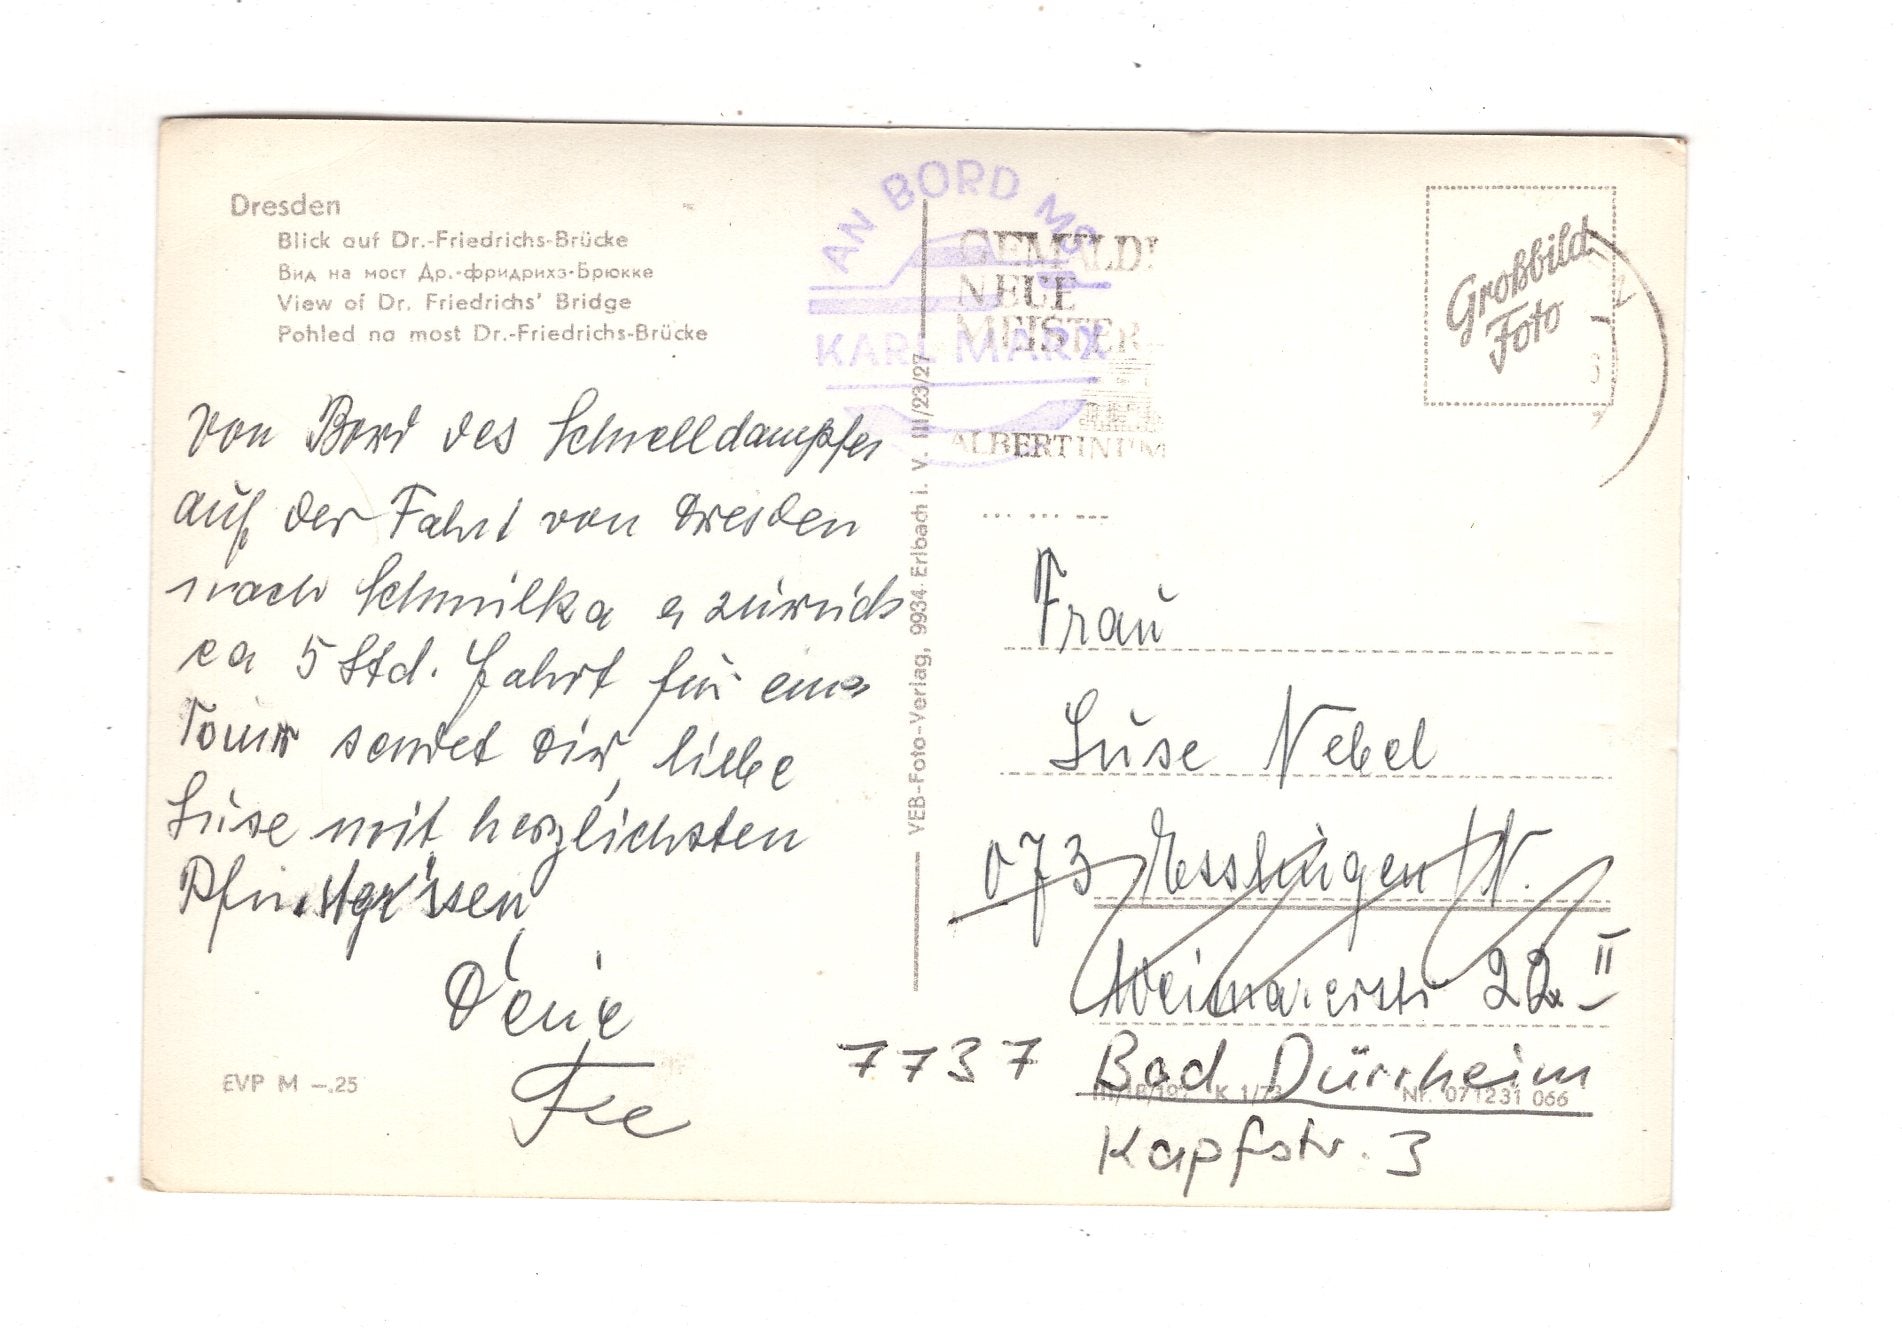 Dresden
Blick auf Dr.-Friedrichs-Brücke
Вид на мост Др.-фридрихз-Брюкке
View of Dr. Friedrichs' Bridge
Pohled na most Dr.-Friedrichs-Brücke
von Bord des Schnelldampfer
auf der Fahrt von Dresden
nach Schmilka u zurück
ca 5 Std. Fahrt für eine
Tour sendet Dir, liebe
Suse mit herzlichsten
Pfingstgrüssen
Deine
Fee
EVP M –.25
VEB-Foto-Verlag, 9934 Erlbach i. V. III/23/27
AN BORD MS
KARL MARX
GEMÄLD
NEUE
MEISTER
ALBERTINUM
Großbild
Foto
Frau
Suse Nebel
073 Esslingen/N.
Weimarerstr 22 II
7737 Bad Dürrheim
K 1/73 Nr. 071231 066
Kapfstr. 3